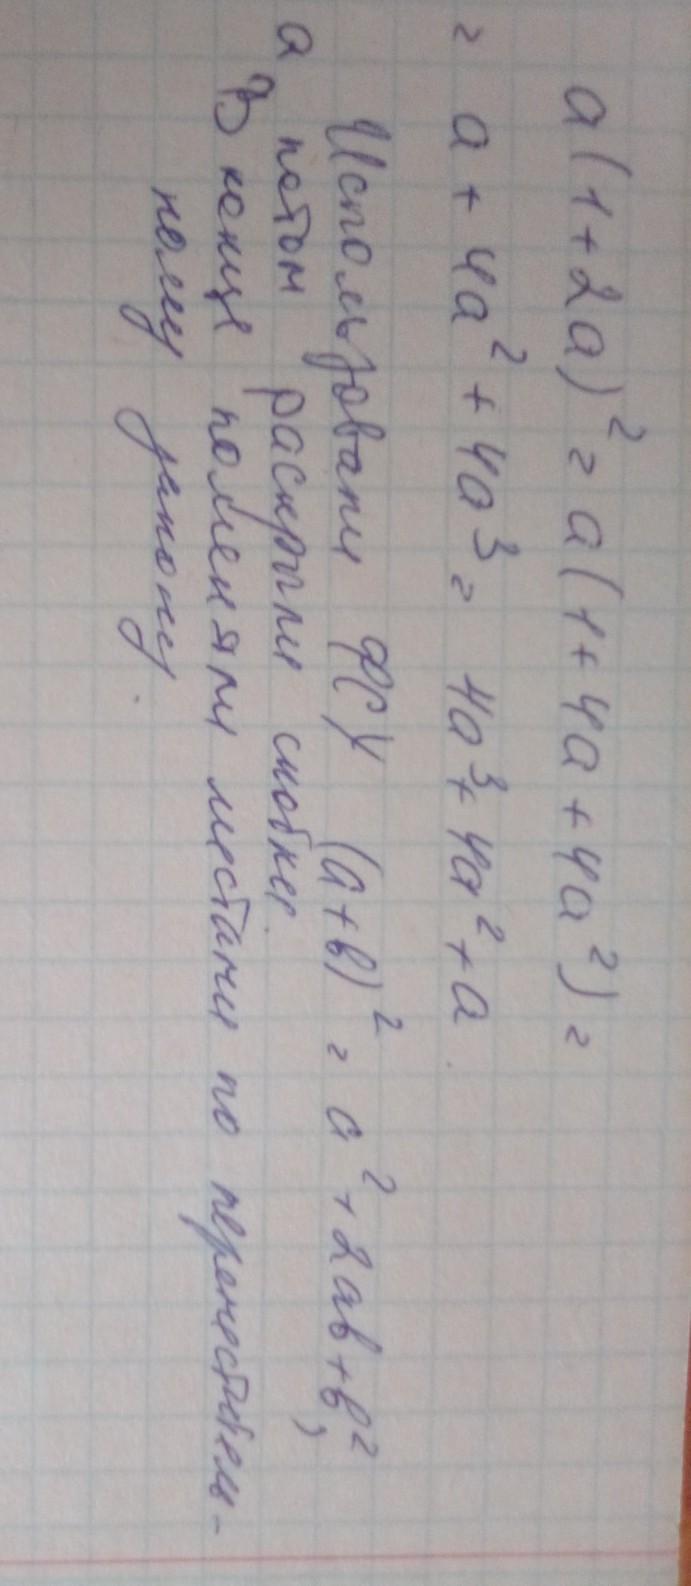 a(1+2a)² = a(1+4a+4a²) =
= a+4a²+4a³ = 4a³+4a²+a
Использовали ФСУ (a+b)² = a²+2ab+b²,
а потом раскрыли скобки.
В конце поменяли местами по переместитель-
ному закону.